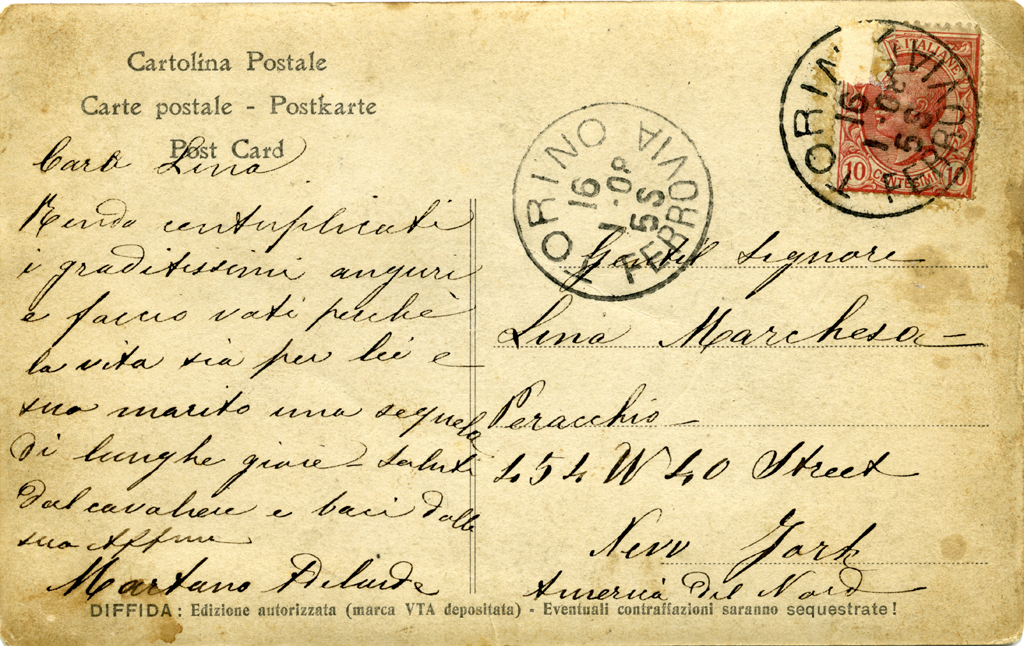 Cartolina Postale
Carte postale - Postkarte
Post Card
Cara Lina
Rendo centuplicati
i graditissimi auguri
e faccio voti perchè
la vita sia per lei e
suo marito una sequela
di lunghe gioie - saluti
dal cavaliere e baci dalla
sua Affma
Martano Adelaide
TORINO FERROVIA
16
1-08
5S
TORINO FERROVIA
16
1-08
5S
E ITALIANE
10 CENTESIMI 10
Gentil Signora
Lina Marchesa-
Peracchio-
454 W 40 Street
New York
America del Nord
DIFFIDA: Edizione autorizzata (marca VTA depositata) - Eventuali contraffazioni saranno sequestrate!